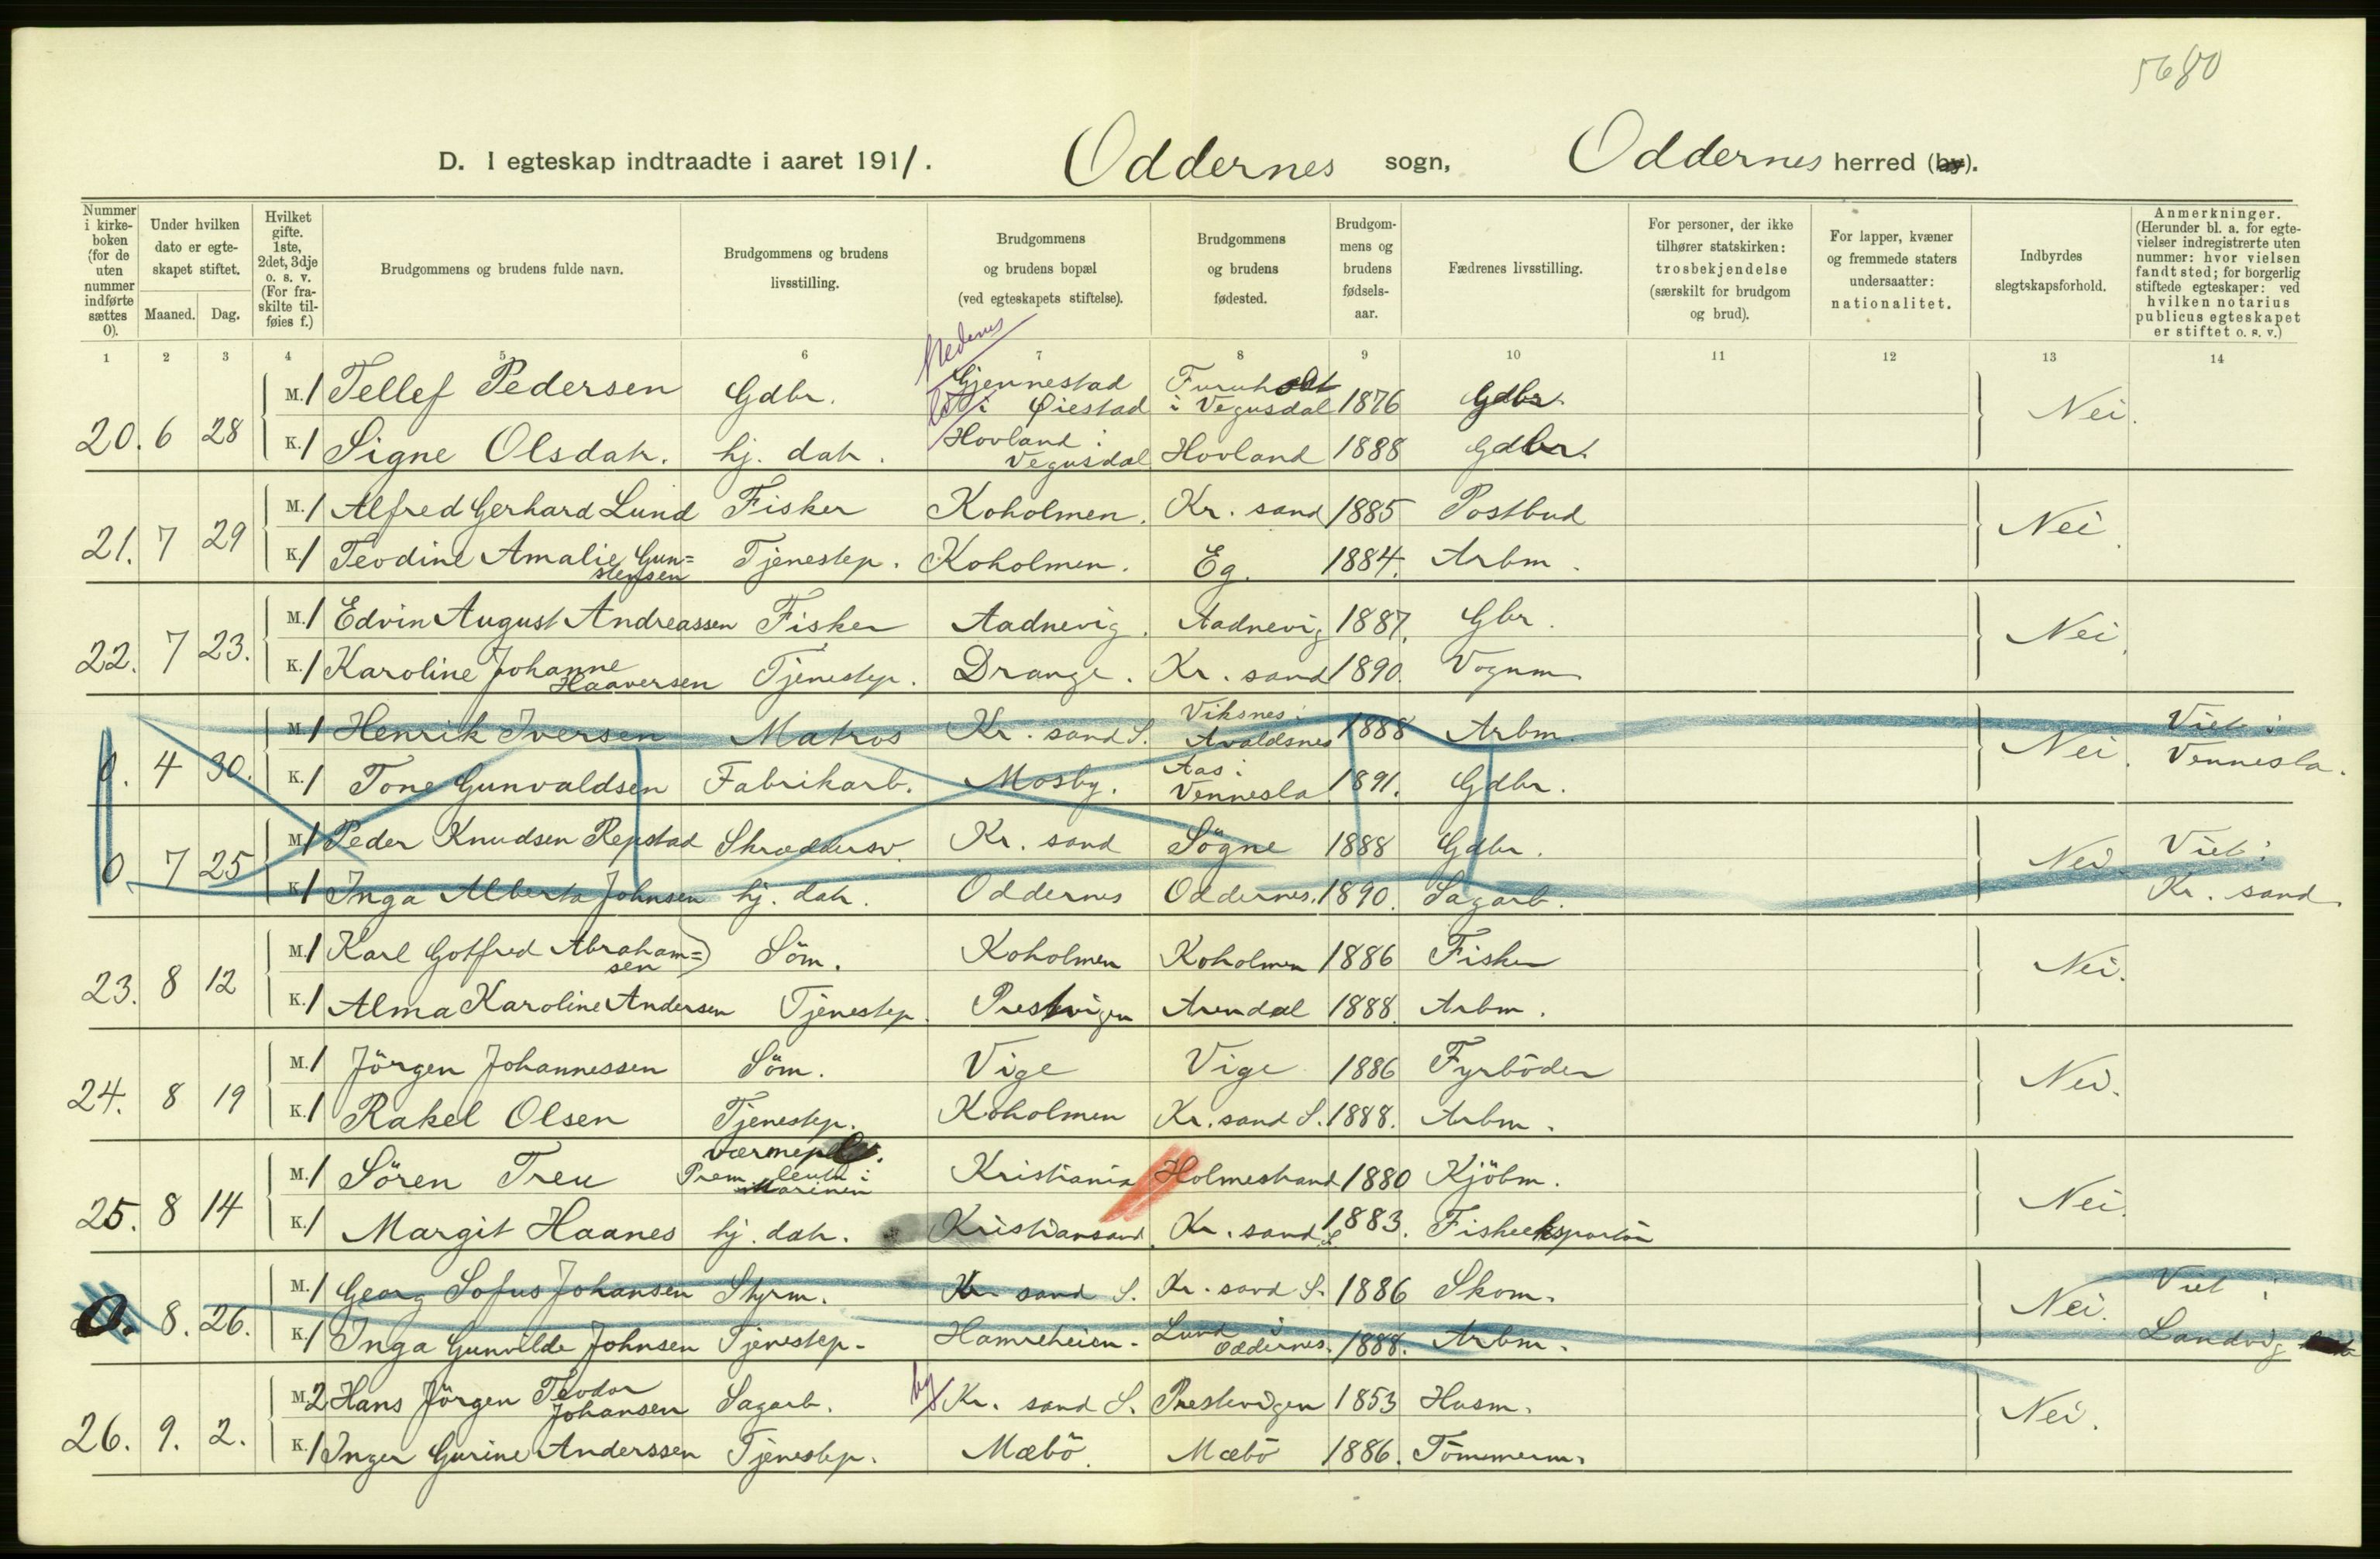 5680
D. I egteskap indtraadte i aaret 1911. Oddernes sogn, Oddernes herred (by).
Nummer i kirkeboken (for de uten nummer indførte sættes 0).
Under hvilken dato er egteskapet stiftet.
Maaned. Dag.
Hvilket gifte. 1ste, 2det, 3dje o. s. v. (For fraskilte tilføies f.)
Brudgommens og brudens fulde navn.
Brudgommens og brudens livsstilling.
Brudgommens og brudens bopæl (ved egteskapets stiftelse).
Brudgommens og brudens fødested.
Brudgommens og brudens fødselsaar.
Fædrenes livsstilling.
For personer, der ikke tilhører statskirken: trosbekjendelse (særskilt for brudgom og brud).
For lapper, kvæner og fremmede staters undersaatter: nationalitet.
Indbyrdes slegtskapsforhold.
Anmerkninger. (Herunder bl. a. for egtevielser indregistrerte uten nummer: hvor vielsen fandt sted; for borgerlig stiftede egteskaper: ved hvilken notarius publicus egteskapet er stiftet o. s. v.)
1 2 3 4 5 6 7 8 9 10 11 12 13 14
Nedenes
20. 6 28 M. 1 Tellef Pedersen Gdbr. Gjennestad i Øiestad Furuholt i Vegusdal 1876 Gdbr. Nei.
K. 1 Signe Olsdatr. hj. datr. Hovland i Vegusdal Hovland 1888 Gdbr.
21. 7 29 M. 1 Alfred Gerhard Lund Fisker Koholmen. Kr. sand 1885 Postbud Nei.
K. 1 Teodine Amalie Gun=stensen Tjenestep. Koholmen. Eg. 1884. Arbm.
22. 7 23. M. 1 Edvin August Andreassen Fisker Aadnevig. Aadnevig 1887. Gbr. Nei.
K. 1 Karoline Johanne Haaversen Tjenestep. Drange. Kr. sand 1890. Vognm
0. 4 30. M. 1 Henrik Iversen Matros Kr. sand S. Viksnes i Avaldsnes 1888 Arbm. Nei. Viet i Vennesla.
K. 1 Tone Gunvaldsen Fabrikarb. Mosby. Aas i Vennesla 1891. Gdbr.
0. 7 25 M. 1 Peder Knudsen Repstad Skræddersv. Kr. sand Sögne 1888 Gdbr. Nei. Viet i Kr. sand.
K. 1 Inga Alberta Johnsen hj. datr. Oddernes Oddernes. 1890. Sagarb.
23. 8 12 M. 1 Karl Gotfred Abraham=sen Söm. Koholmen Koholmen 1886 Fisker Nei.
K. 1 Alma Karoline Andersen Tjenestep. Prestvigen Arendal 1888. Arbm.
24. 8 19 M. 1 Jörgen Johannessen Söm. Vige Vige 1886 Fyrböder Nei.
K. 1 Rakel Olsen Tjenestep. Koholmen Kr. sand S. 1888. Arbm.
25. 8 14 M. 1 Sören Treu Prem. leutn. i Marinen Kristiania Holmestrand 1880 Kjöbm. Nei.
K. 1 Margit Haanes hj. datr. Kristiansand. Kr. sand S. 1883. Fiskeeksportör
0. 8. 26. M. 1 Georg Sofus Johansen Styrm. Kr. sand S. Kr. sand S. 1886 Skom. Nei. Viet i Landvig
K. 1 Inga Gunvilde Johnsen Tjenestep. Hamreheien. Lund i Oddernes. 1888. Arbm.
26. 9. 2. M. 2 Hans Jörgen Teodor Johansen Sagarb. by Kr. sand S. Prestevigen 1853 Husm. Nei.
K. 1 Inger Gurine Anderssen Tjenestep. Mæbö. Mæbö 1886. Tömmerm.